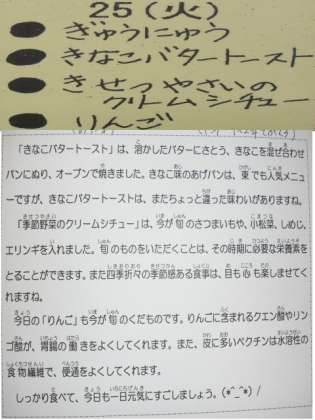 25(火)
ぎゅうにゅう
きなこバタートースト
きせつやさいの
クリームシチュー
りんご
「きなこバタートースト」は、溶かしたバターにさとう、きなこを混ぜ合わせ
パンにぬり、オーブンで焼きました。きなこ味のあげパンは、東でも人気メニュ
ーですが、きなこバタートーストは、またちょっと違った味わいがありますね。
「季節野菜のクリームシチュー」は、今が旬のさつまいもや、小松菜、しめじ、
エリンギを入れました。旬のものをいただくことは、その時期に必要な栄養素を
とることができます。また四季折々の季節感ある食事は、目も心も楽しませてく
れますね。
今日の「りんご」も今が旬のくだものです。りんごに含まれるクエン酸やリン
ゴ酸が、胃腸の働きをよくしてくれます。また、皮に多いペクチンは水溶性の
食物繊維で、便通をよくしてくれます。
しっかり食べて、今日も一日元気にすごしましょう。(*^_^*)/